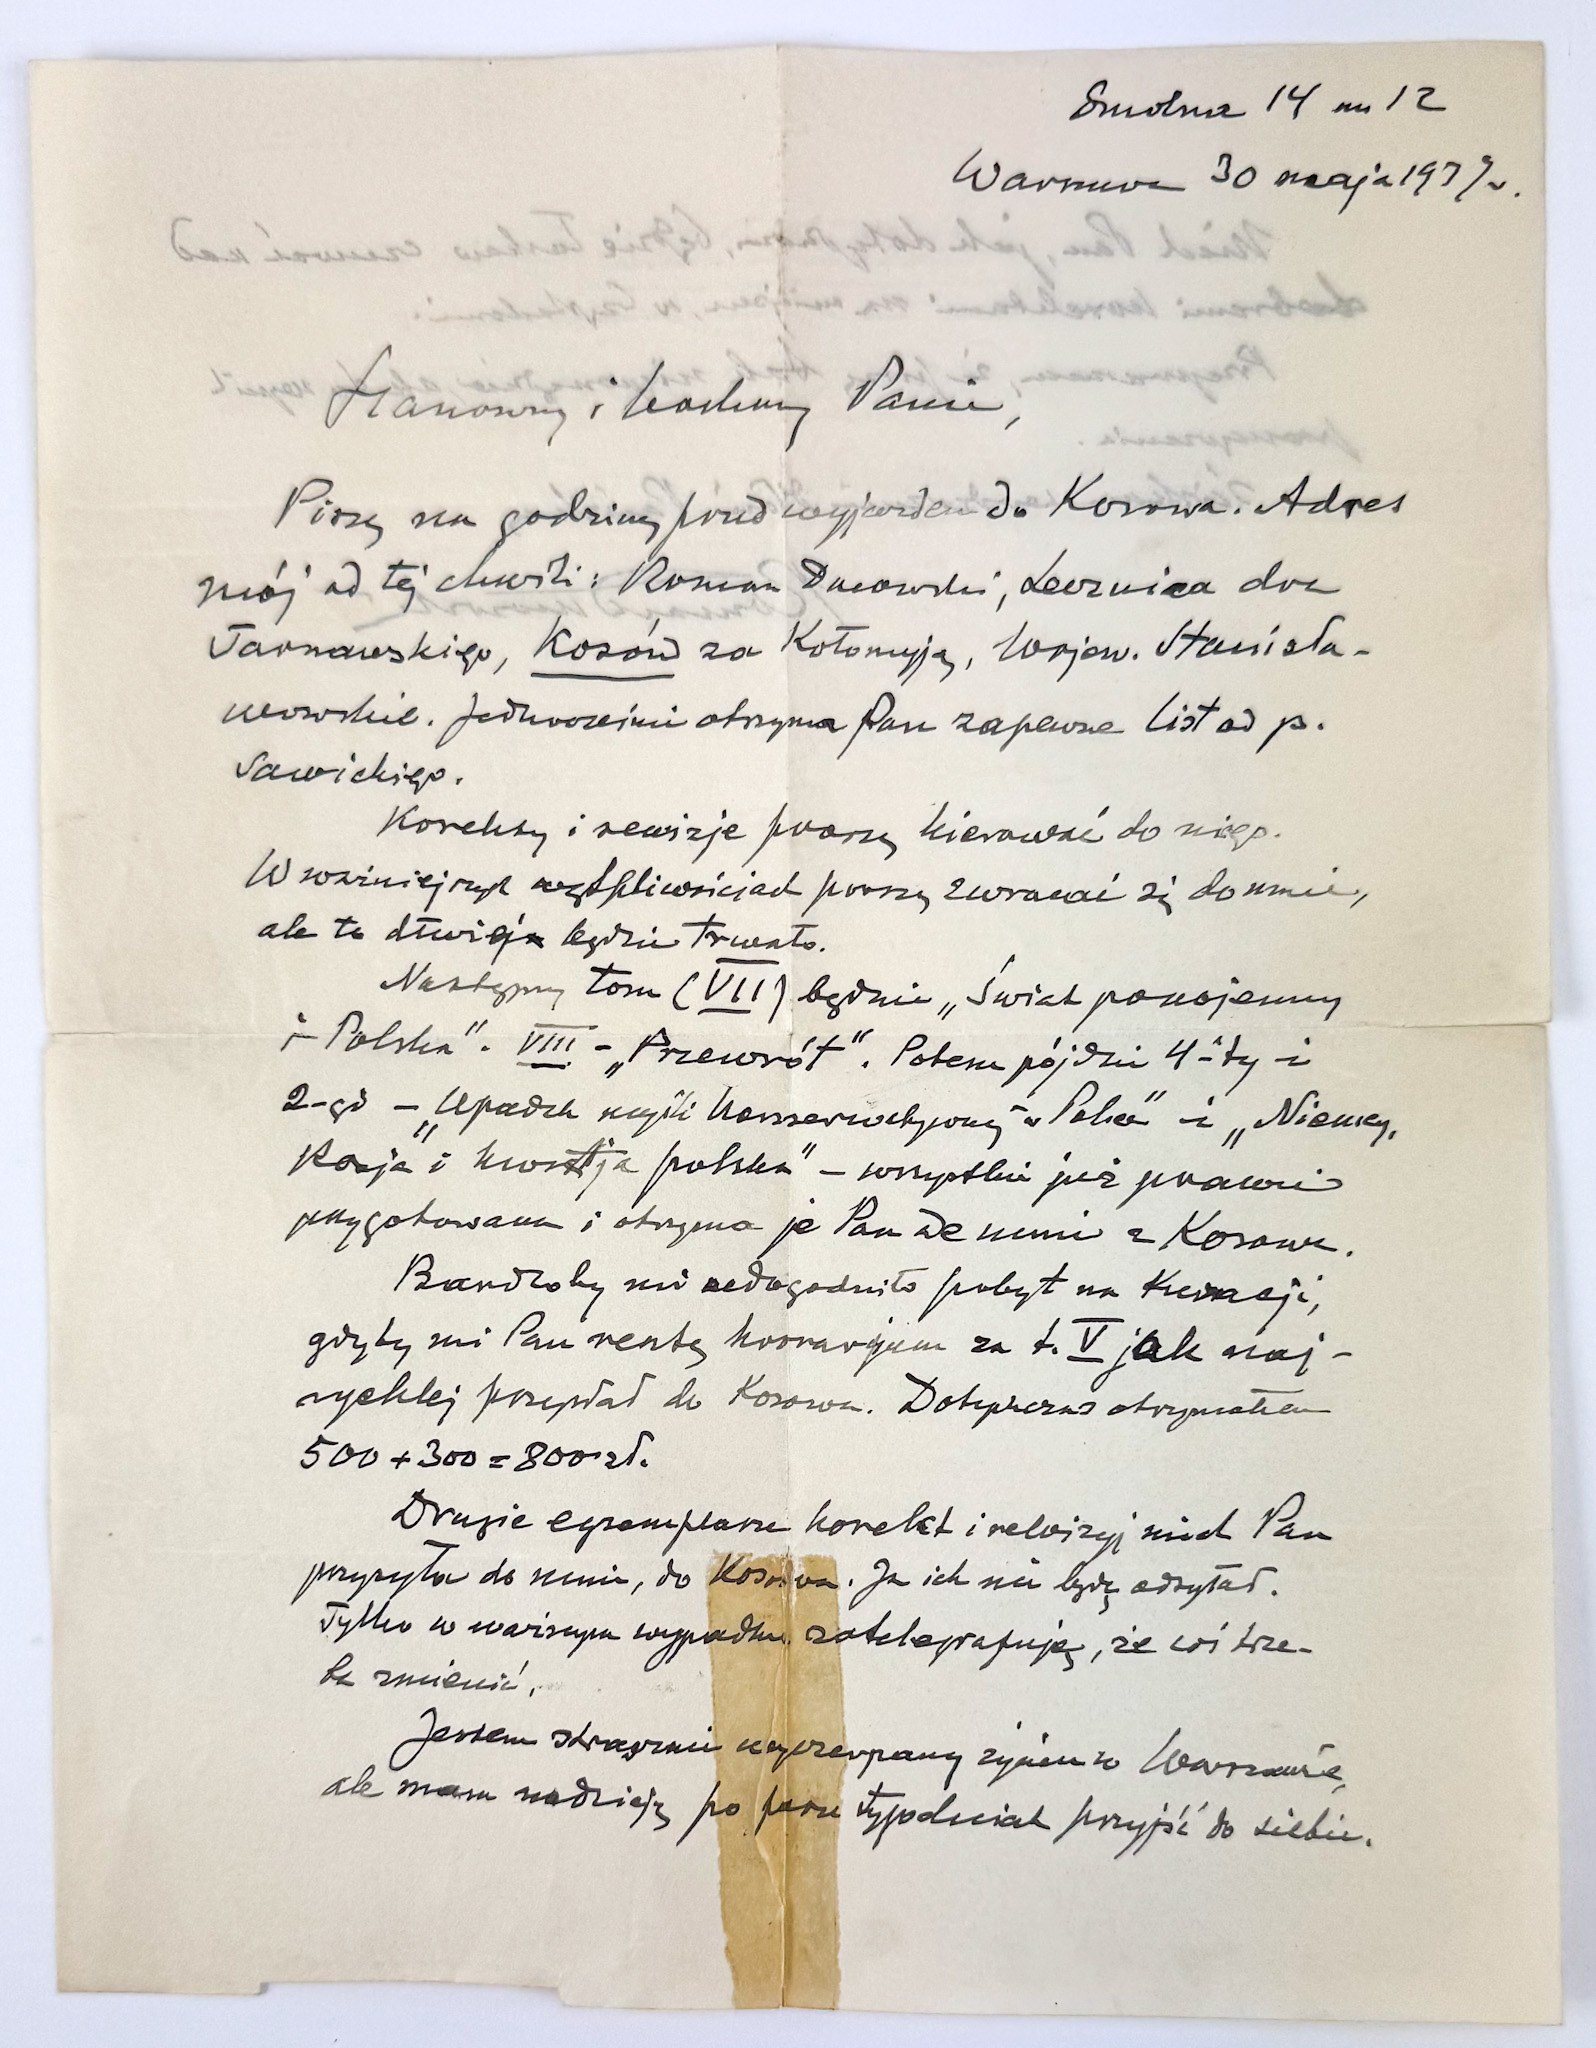 Smolna 14 m 12
Warszawa 30 maja 1937 r.
Szanowny i Kochany Panie,
Piszę na godzinę przed wyjazdem do Kosowa. Adres
mój od tej chwili: Roman Dmowski, Lecznica dra
Tarnawskiego, Kosów za Kołomyją, Wojew. Stanisła-
wowskie. Jednocześnie otrzyma Pan zapewne list od p.
Sawickiego.
Korekty i rewizje proszę kierować do niego.
W ważniejszych wątpliwościach proszę zwracać się do mnie,
ale to dłużej będzie trwało.
Następny tom (VII) będzie „Świat powojenny
i Polska". VIII – „Przewrót". Potem pójdzie 4-ty i
2-gi – „Upadek myśli konserwatywnej w Polsce" i „Niemcy,
Rosja i kwestja polska" – wszystkie już prawie
przygotowane i otrzyma je Pan ode mnie z Kosowa.
Bardzoby mi udogodniło pobyt na kuracji,
gdyby mi Pan resztę honorarjum za t. V jak naj-
rychlej przysłał do Kosowa. Dotychczas otrzymałem
500 + 300 = 800 zł.
Drugie egzemplarze korekt i rewizyj niech Pan
przysyła do mnie, do Kosowa. Ja ich nie będę odsyłał.
Tylko w ważnym wypadku zatelegrafuję, że coś trze-
ba zmienić.
Jestem strasznie wyczerpany życiem w Warszawie,
ale mam nadzieję po paru tygodniach przyjść do siebie.